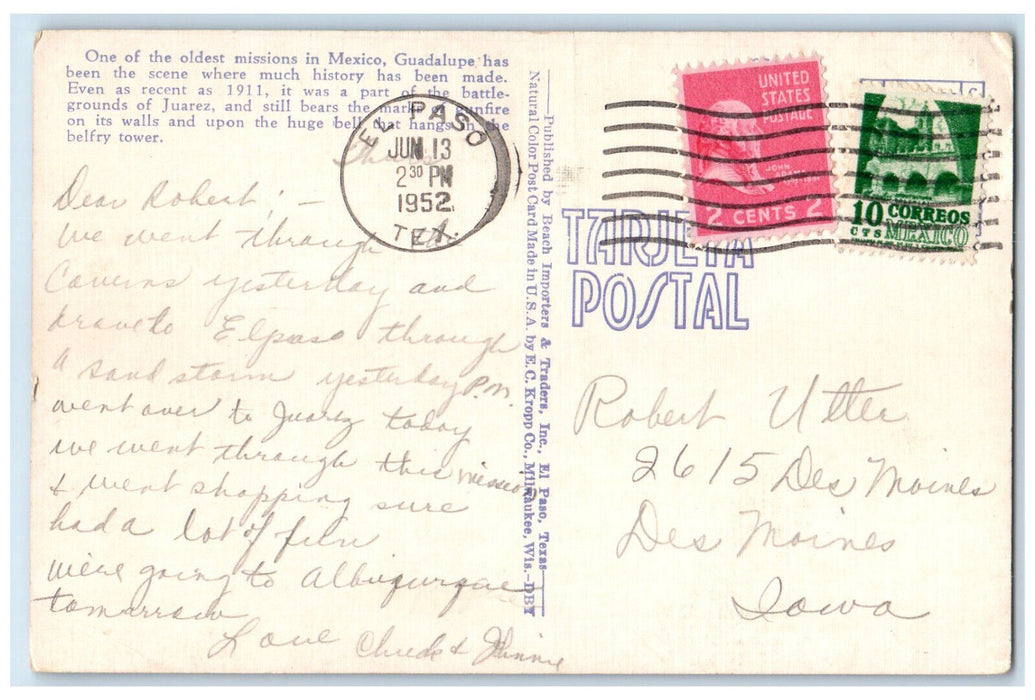 One of the oldest missions in Mexico, Guadalupe has
been the scene where much history has been made.
Even as recent as 1911, it was a part of the battle-
grounds of Juarez, and still bears the marks of gunfire
on its walls and upon the huge bell that hangs in the
belfry tower.
EL PASO
JUN 13
2 30 PM
1952
TEX.
Dear Robert, —
We went through
Caverns yesterday and
drave to Elpaso through
a sand storm yesterday P.M.
went over to Juarz today
we went through this mission
& went shopping sure
had a lot of fun
we're going to Albuqurque
tomarrow
Love
—Published by Beach Importers & Traders, Inc., El Paso, Texas—
Natural Color Post Card Made in U.S.A. by E. C. Kropp Co., Milwaukee, Wis.—DBY
UNITED
STATES
POSTAGE
JOHN
2 CENTS 2
10 CORREOS
CTS MEXICO
TARJETA
POSTAL
Robert Utter
2615 Des Moines
Des Moines
Iowa